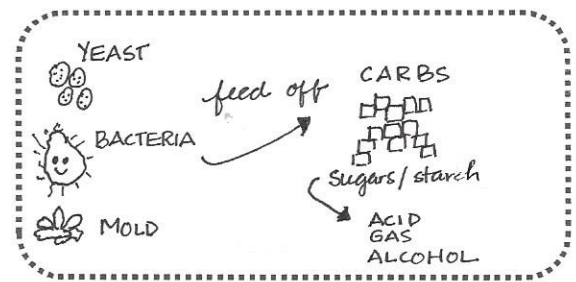 YEAST
BACTERIA
MOLD
feed off
CARBS
sugars/starch
ACID
GAS
ALCOHOL